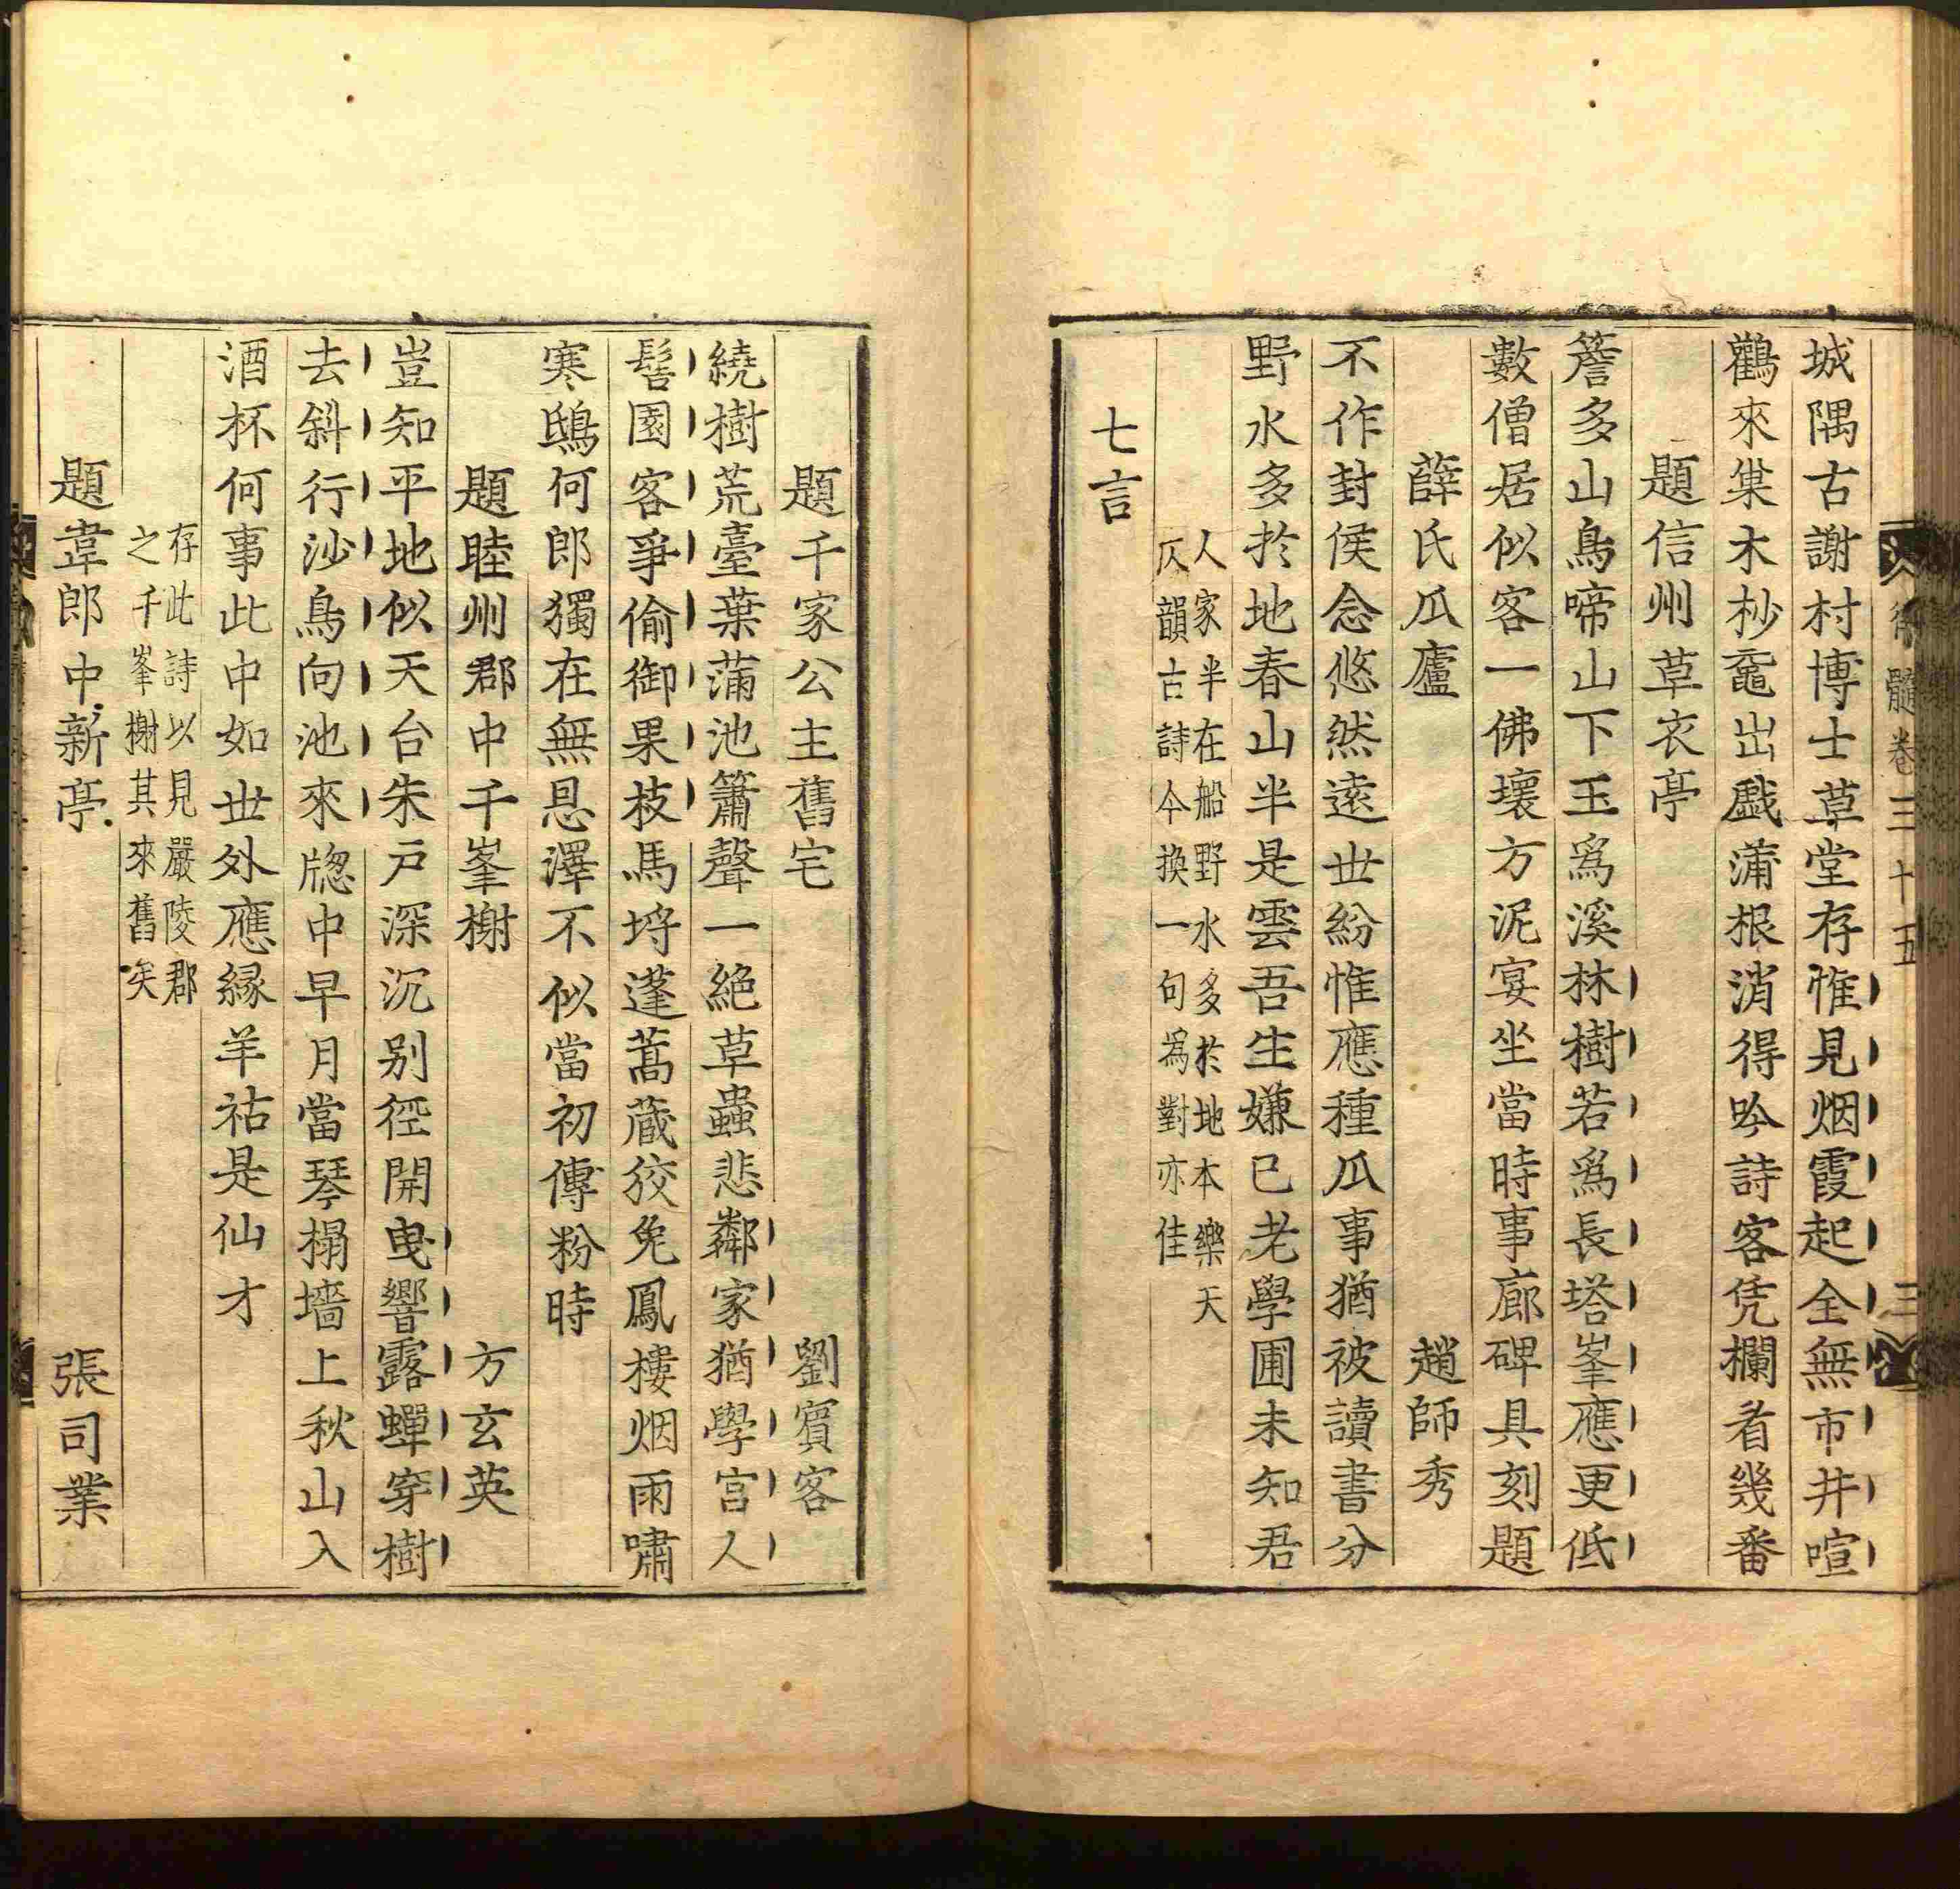 髓卷三十五
三
城隅古謝村博士草堂存惟見烟霞起全無市井喧
鸛來巢木杪黿出戲蒲根消得吟詩客凭欄看幾番
題信州草衣亭
簷多山鳥啼山下玉爲溪林樹若爲長塔峯應更低
數僧居似客一佛壞方泥宴坐當時事廊碑具刻題
薛氏瓜廬 趙師秀
不作封侯念悠然遠世紛惟應種瓜事猶被讀書分
野水多於地春山半是雲吾生嫌已老學圃未知君
人家半在船野水多於地本樂天
仄韻古詩今換一句爲對亦佳
七言
題千家公主舊宅 劉賓客
繞樹荒臺葉蒲池簫聲一絶草蟲悲鄰家猶學宫人
髻園客爭偷御果枝馬埒蓬蒿蔵狡免鳳樓烟雨嘯
寒鴟何郎獨在無恩澤不似當初傳粉時
題睦州郡中千峯榭 方玄英
豈知平地似天台朱戸深沉别徑開曳響露蟬穿樹
去斜行沙鳥向池來牕中早月當琴榻墻上秋山入
酒杯何事此中如世外應縁羊祜是仙才
存此詩以見嚴陵郡
之千峯榭其來舊矣
題韋郎中新亭 張司業